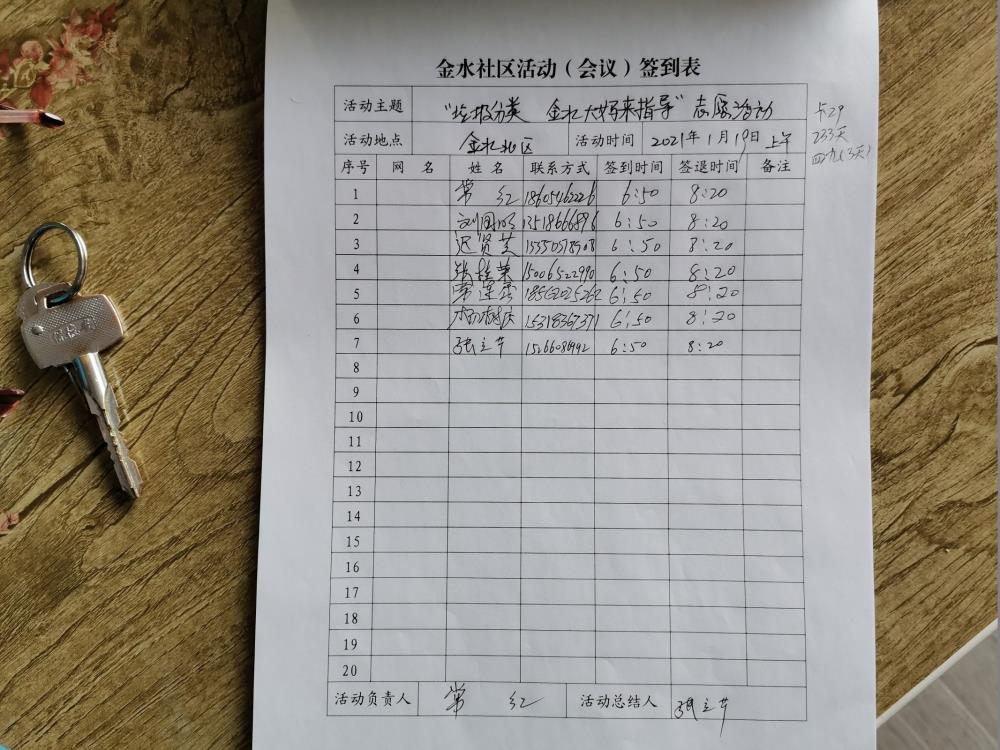 金水社区活动（会议）签到表
活动主题 “垃圾分类 金水大妈来指导”志愿活动
活动地点 金水社区 活动时间 2021年1月19日上午
序号 网名 姓名 联系方式 签到时间 签退时间 备注
1 常红 18605462226 6:50 8:20
2 刘国明 13518666896 6:50 8:20
3 迟贤芝 6:50 8:20
4 张桂荣 15006522990 6:50 8:20
5 常连芬 18562025262 6:50 8:20
6 15318367371 6:50 8:20
7 张立芹 6:50 8:20
8
9
10
11
12
13
14
15
16
17
18
19
20
活动负责人 常红 活动总结人 张立芹
卡29
233天
四九(3天)